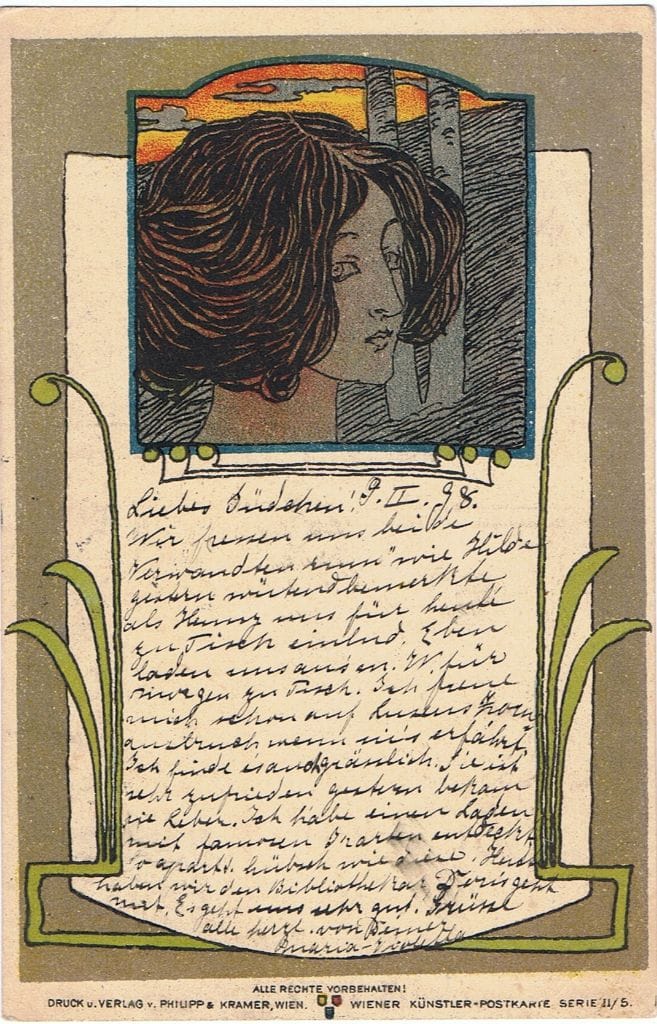 Liebes Südchen! 9. II. 98.
Wir fressen uns bei de
Verwandten rum" wie Hilde
gestern wütend bemerkte
als Henny uns für heute
zu Tisch einlud. Eben
laden uns aus en. W. für
morgen zu Tisch. Ich freue
mich schon auf Zorn
ausbruch wenn sie's erfährt,
Ich finde es auch grässlich. Sie ist
sehr zufrieden gestern bekam
sie Leber. Ich habe einen Laden
mit famosen Karten entdeckt
so apart u. hübsch wie diese. Heute
haben wir den Bibliothekar Doris geht
mit. Es geht uns sehr gut. Grüsse
alle herzl. von Deiner
Maria-Violetta
ALLE RECHTE VORBEHALTEN!
DRUCK u. VERLAG v. PHILIPP & KRAMER, WIEN. WIENER KÜNSTLER-POSTKARTE SERIE II/5.